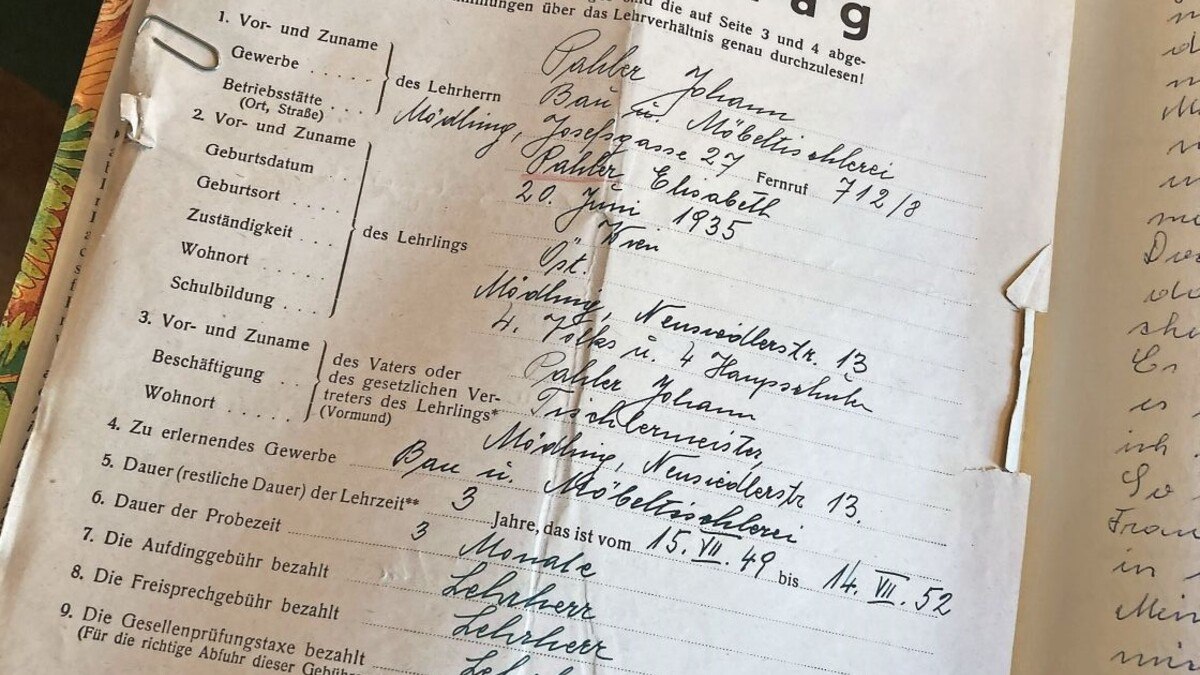 ag
sind die auf Seite 3 und 4 abge-
mmungen über das Lehrverhältnis genau durchzulesen!
1. Vor- und Zuname des Lehrherrn Pahler Johann
Gewerbe . . . . . . Bau u. Möbeltischlerei
Betriebsstätte . . . Mödling, Josefsgasse 27 Fernruf 712/8
(Ort, Straße)
2. Vor- und Zuname des Lehrlings Pahler Elisabeth
Geburtsdatum . . . . 20. Juni 1935
Geburtsort . . . . Wien
Zuständigkeit . . . . Öst.
Wohnort . . . . Mödling, Neusiedlerstr. 13
Schulbildung . . . . 4. Volks u. 4 Haupschule
3. Vor- und Zuname des Vaters oder des gesetzlichen Ver-treters des Lehrlings* (Vormund) Pahler Johann
Beschäftigung . . . Tischlermeister,
Wohnort . . . . . . Mödling, Neusiedlerstr. 13.
4. Zu erlernendes Gewerbe Bau u. Möbeltischlerei
5. Dauer (restliche Dauer) der Lehrzeit** 3 Jahre, das ist vom 15. VII. 49 bis 14. VII. 52
6. Dauer der Probezeit 3 Monate
7. Die Aufdinggebühr bezahlt Lehrherr
8. Die Freisprechgebühr bezahlt Lehrherr
9. Die Gesellenprüfungstaxe bezahlt
(Für die richtige Abfuhr dieser